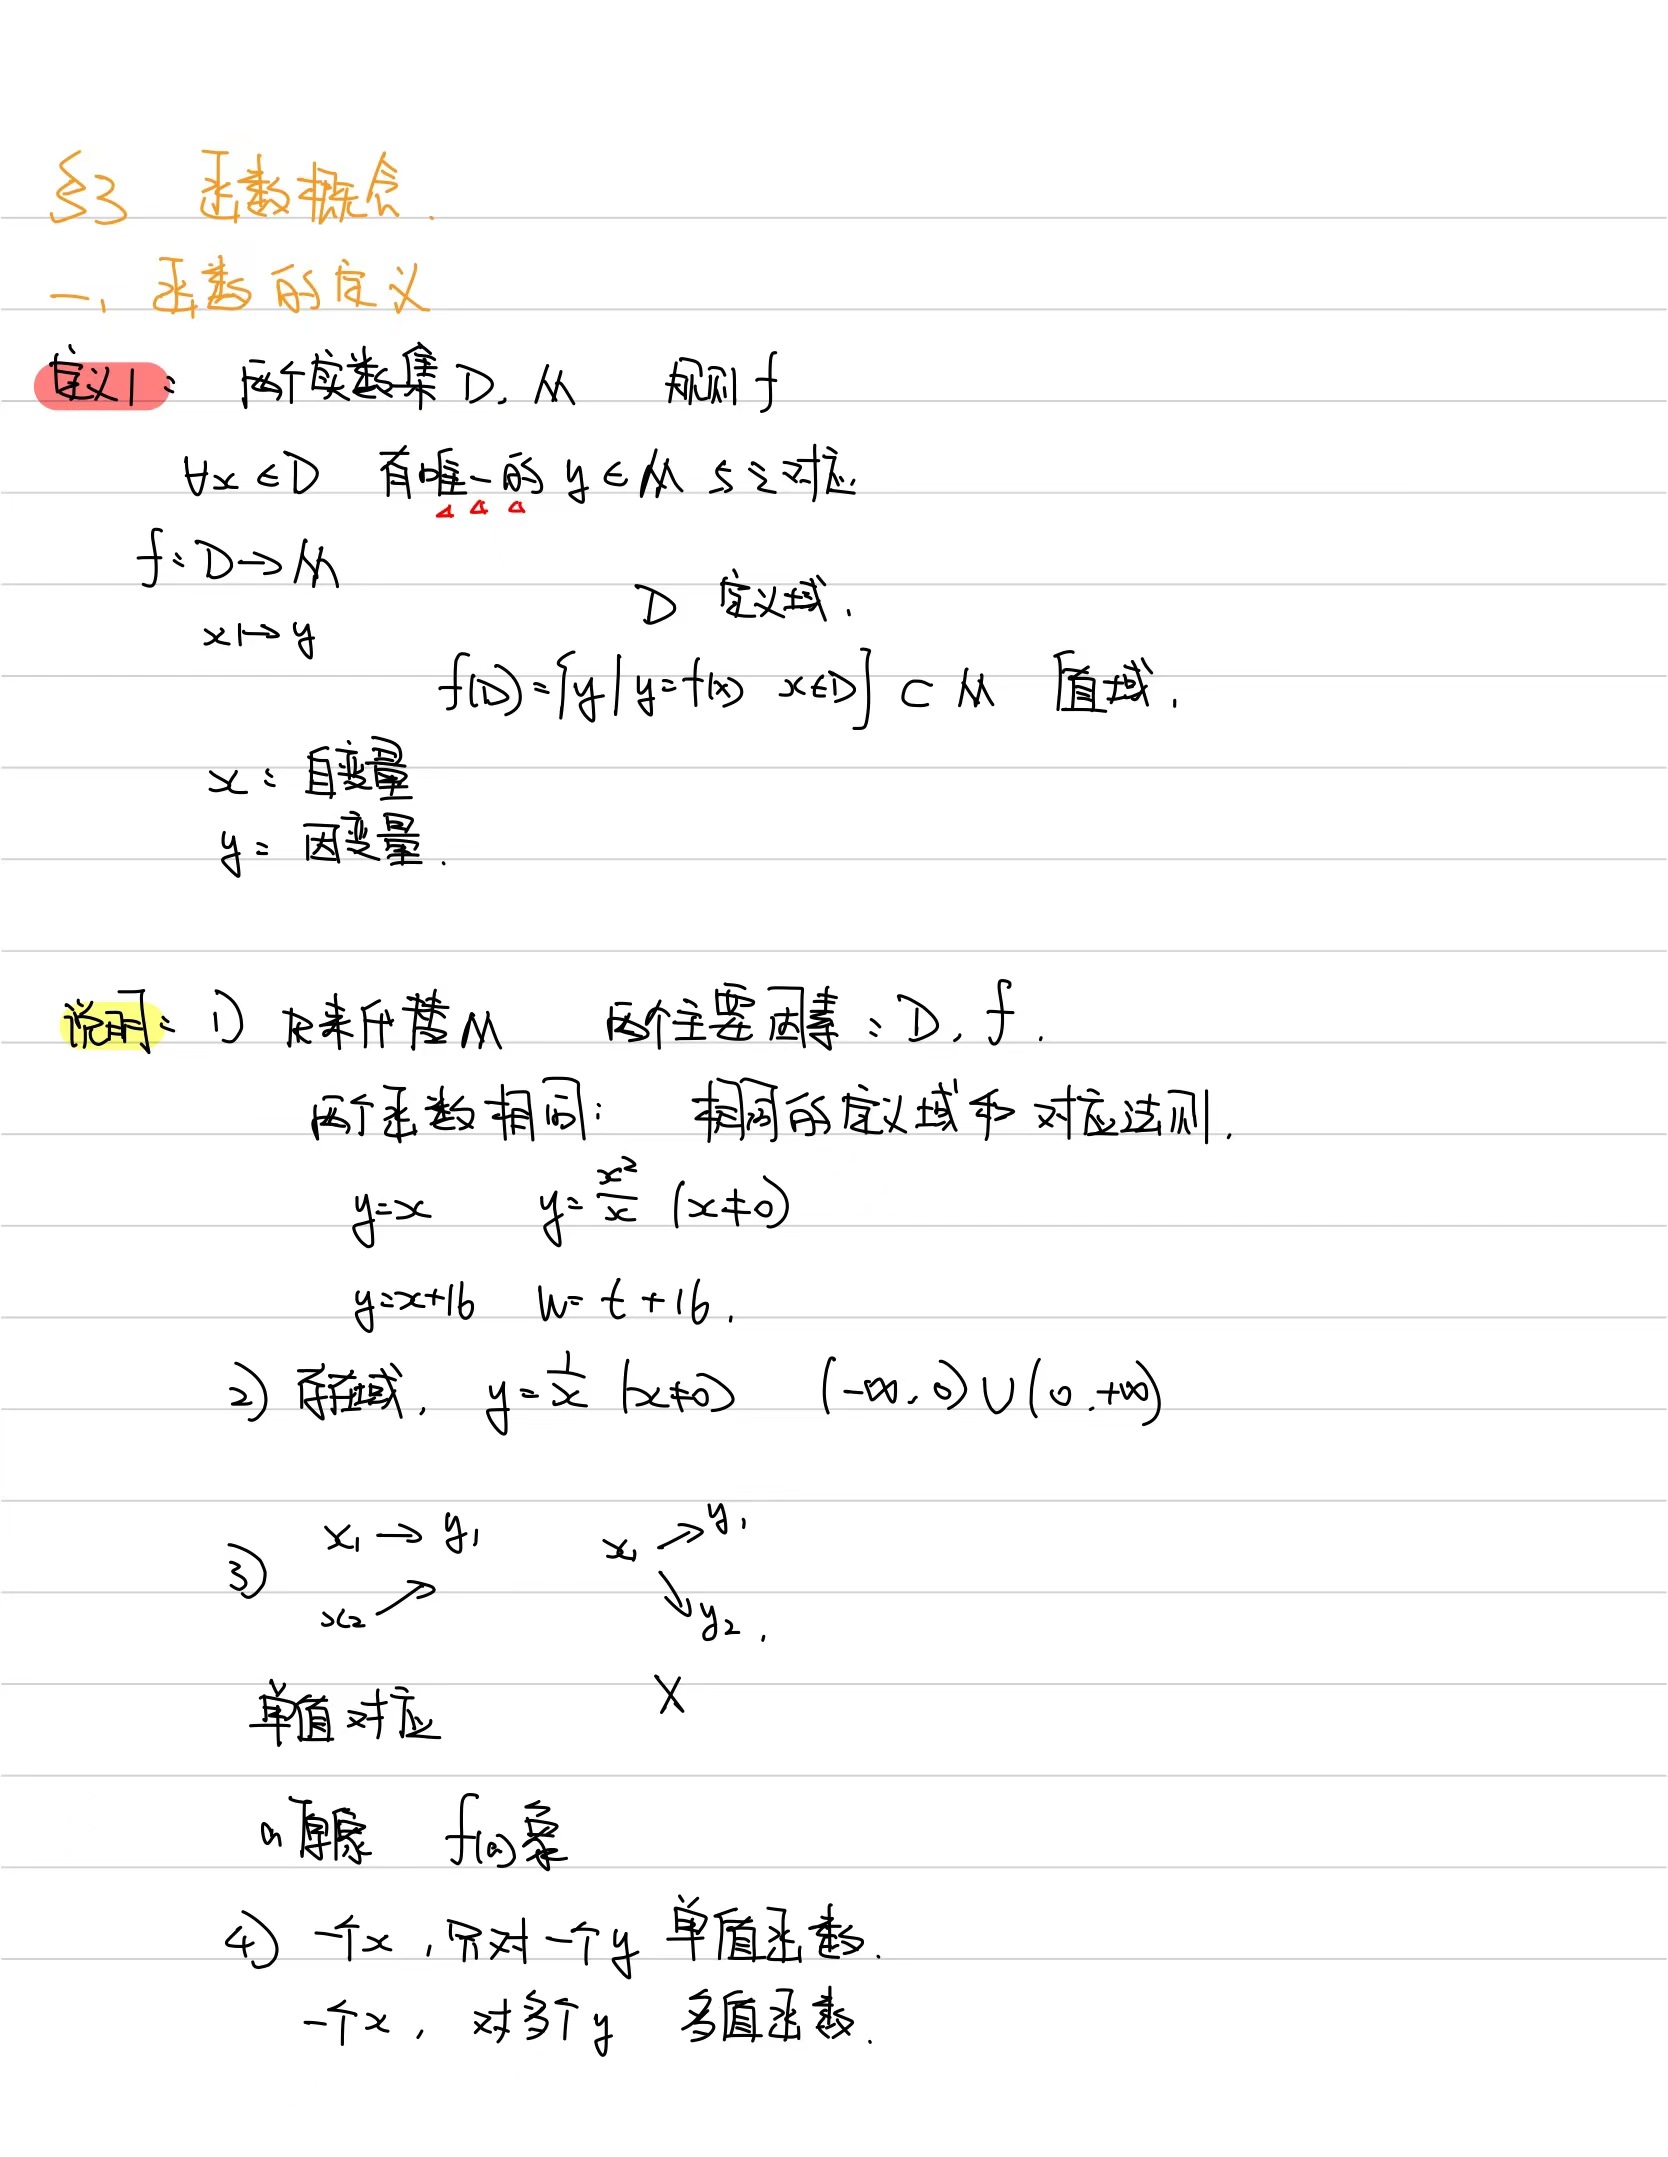 §3 函数概念.
一、函数的定义
定义1: 两个实数集 D, M 规则 f
∀x∈D 有唯一的 y∈M 与之对应.
f: D→M
D 定义域.
x↦y
f(D)={y|y=f(x) x∈D}⊂M 值域.
x: 自变量
y: 因变量.
说明: 1) R来代替M 两个主要因素: D, f.
两个函数相同: 相同的定义域和对应法则.
y=x y=x²/x (x≠0)
y=x+16 w=t+16.
2) 存在域, y=1/x (x≠0) (-∞,0)∪(0,+∞)
3) x₁→y₁ x₁↗y₁
x₂↗ ↘y₂.
单值对应 X
a原象 f(a)象
4) 一个x,只对一个y 单值函数.
一个x, 对多个y 多值函数.